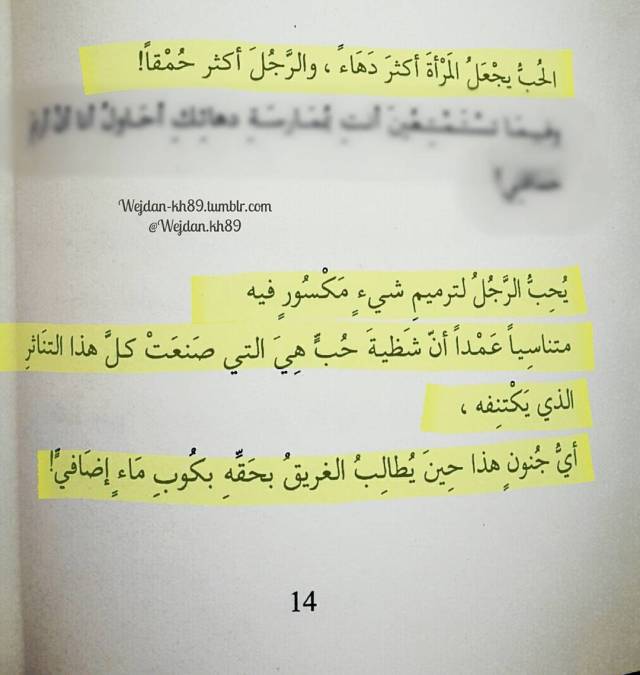 الحُبُّ يجْعَلُ المَرْأةَ أكثرَ دَهَاءً ، والرَّجُلَ أكثر حُمْقاً!
وفيمَا تسْتَمْتِعْينَ أنتِ بمُمَارسَةِ دهائِكِ أحَاولُ أنا أنْ
Wejdan-kh89.tumblr.com
@Wejdan.kh89
يُحِبُّ الرَّجُلُ لترميمِ شيءٍ مَكْسُورٍ فيه
متناسِياً عَمْداً أنّ شَظيةَ حُبٍّ هِيَ التي صَنعَتْ كلَّ هذا التنَاثرِ
الذي يَكْتنِفه ،
أيُّ جُنونٍ هذا حِينَ يُطالِبُ الغريقُ بحَقِّهِ بكُوبِ مَاءٍ إضَافيٍّ!
14